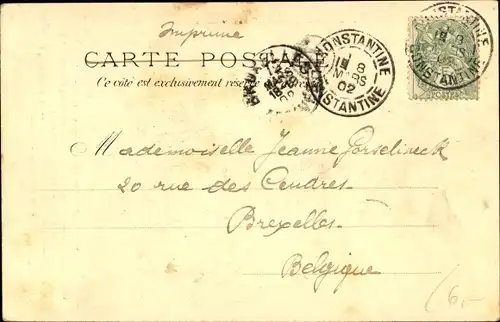 Imprimé
CARTE POSTALE
Ce côté est exclusivement réservé
CONSTANTINE
8
MARS
02
CONSTANTINE
CONSTANTINE
8
02
Mademoiselle Jeanne
20 rue des Cendres
Brexelles
Belgique
6,-